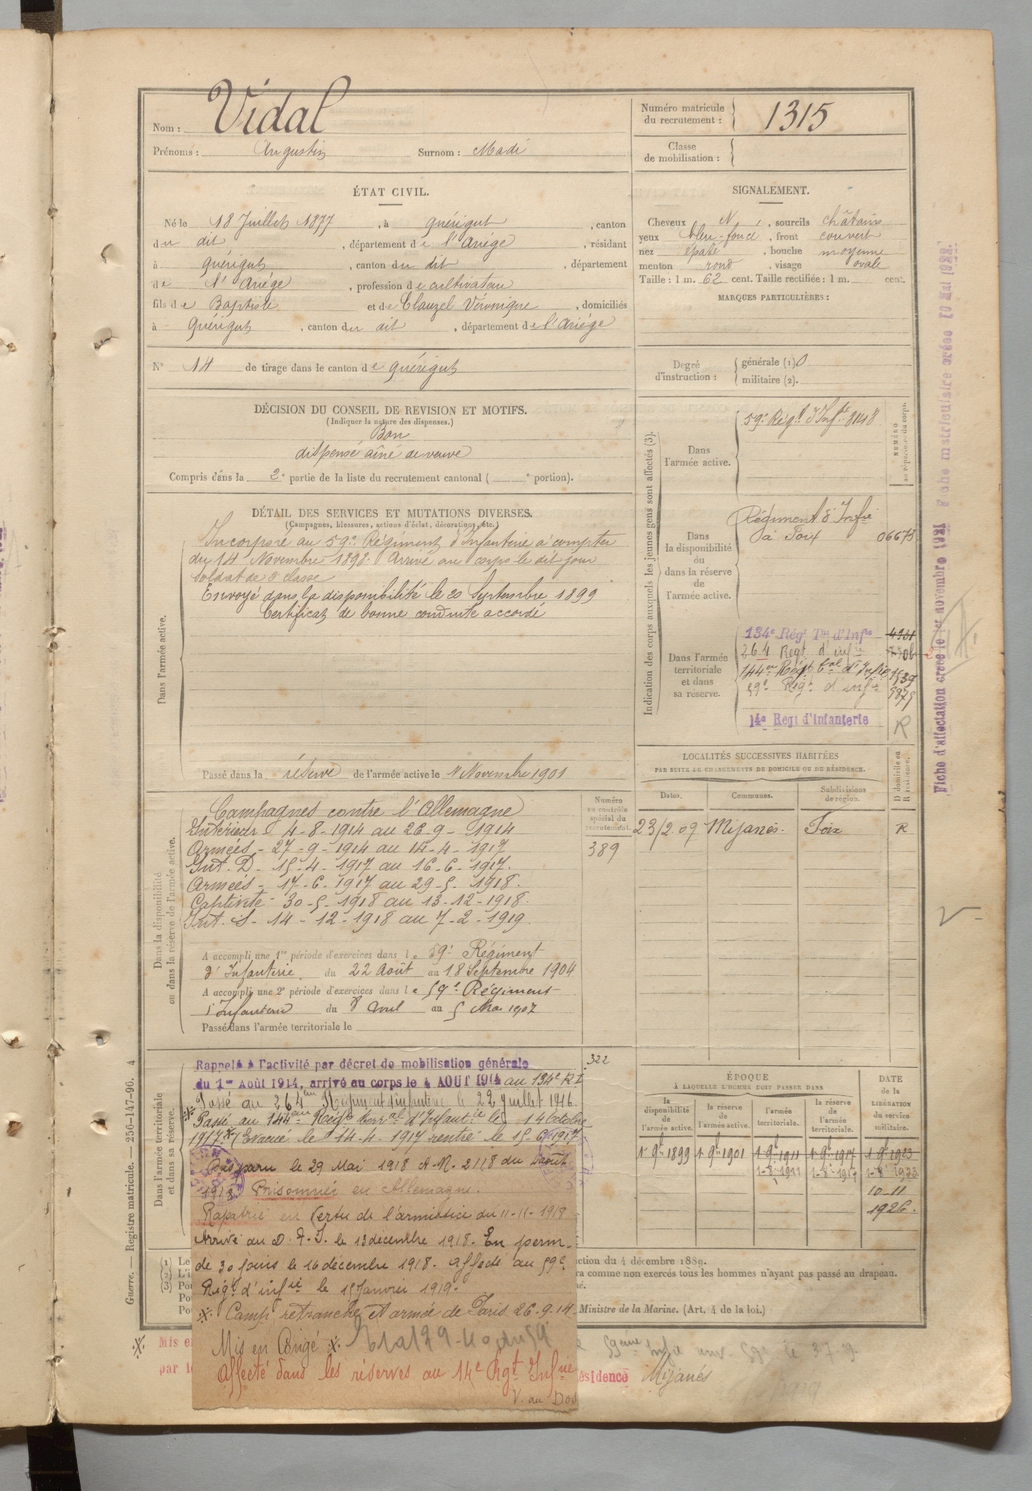 Nom : Vidal
Prénoms : Augustin Surnom : Madi
Numéro matricule du recrutement : 1315
Classe de mobilisation :
ÉTAT CIVIL.
Né le 18 Juillet 1877, à Quérigut, canton
du dit, département de l'Ariège, résidant
à Quérigut, canton du dit, département
de l'Ariège, profession de cultivateur
fils de Baptiste et de Clauzel Véronique, domiciliés
à Quérigut, canton du dit, département de l'Ariège
N° 14 de tirage dans le canton de Quérigut
SIGNALEMENT.
Cheveux N, sourcils châtains
yeux bleu-foncé, front couvert
nez épaté, bouche moyenne
menton rond, visage ovale
Taille : 1 m. 62 cent. Taille rectifiée : 1 m. cent.
MARQUES PARTICULIÈRES :
Degré d'instruction : générale (1) 0
militaire (2).
DÉCISION DU CONSEIL DE REVISION ET MOTIFS.
(Indiquer la nature des dispenses.)
Bon
dispensé aîné de veuve
Compris dans la 2e partie de la liste du recrutement cantonal ( e portion).
DÉTAIL DES SERVICES ET MUTATIONS DIVERSES.
(Campagnes, blessures, actions d'éclat, décorations, etc.)
Dans l'armée active.
Incorporé au 59e Régiment d'Infanterie à compter
du 14 Novembre 1898. Arrivé au corps le dit jour
soldat de 2e classe
Envoyé dans la disponibilité le 20 Septembre 1899
Certificat de bonne conduite accordé
Passé dans la réserve de l'armée active le 1 Novembre 1901
Indication des corps auxquels les jeunes gens sont affectés (3).
NUMÉRO au répertoire du corps.
Dans l'armée active.
59e Régt d'Infie 3148
Dans la disponibilité ou dans la réserve de l'armée active.
Régiment d'Infie
à Foix 06675
Dans l'armée territoriale et dans sa réserve.
134e Régt Tal d'Infie
264 Régt d'infie
144e Régt Tal d'Infie
59e Régt d'infie
14e Régt d'Infanterie R
LOCALITÉS SUCCESSIVES HABITÉES
PAR SUITE DE CHANGEMENTS DE DOMICILE OU DE RÉSIDENCE.
Dates. Communes. Subdivisions de région. D domicile ou R résidence.
23/2 09 Mijanès. Foix R
Numéro au contrôle spécial du recrutement.
389
322
Dans la disponibilité ou dans la réserve de l'armée active.
Campagnes contre l'Allemagne
Intérieur : 4-8-1914 au 26-9-1914
Armées - 27-9-1914 au 14-4-1917
Int. D - 15-4-1917 au 16-6-1917.
Armées - 17-6-1917 au 29-5-1918.
Captivité - 30-5-1918 au 13-12-1918.
Int. S - 14-12-1918 au 7-2-1919.
A accompli une 1re période d'exercices dans le 59e Régiment
d'Infanterie du 22 Août au 18 Septembre 1904
A accompli une 2e période d'exercices dans le 59e Régiment
d'Infanterie du 8 Avril au 5 Mai 1907
Passé dans l'armée territoriale le
Dans l'armée territoriale et dans sa réserve.
Rappelé à l'activité par décret de mobilisation générale
du 1er Août 1914, arrivé au corps le 4 AOUT 1914 au 134e RI
Passé au 264eme Régiment d'infanterie le 22 juillet 1916
Passé au 144eme Régt terral d'Infantie le 14 octobre
1917 Evacué le 14-4-1917 rentré le 15-6-1917
Disparu le 29 Mai 1918 A.M. 2118 du août
1918. Prisonnier en Allemagne.
Rapatrié en vertu de l'armistice du 11-11-1918
Arrivé au D. F. I. le 13 décembre 1918. En perm.
de 30 jours le 16 décembre 1918. affecté au 59e
Régt d'infie le 15 Janvier 1919.
Camp retranché et armée de Paris 26.9.14
Mis en congé
Affecté dans les réserves au 14e Rgt Infie
V. au Dos
ÉPOQUE
À LAQUELLE L'HOMME DOIT PASSER DANS
la disponibilité de l'armée active. la réserve de l'armée active. l'armée territoriale. la réserve de l'armée territoriale. DATE de la LIBÉRATION du service militaire.
1 9e 1899 1 9e 1901 1 9e 1911 1 9e 1917 1 9e 1923
10-11
1926.
ction du 4 décembre 1889.
ra comme non exercés tous les hommes n'ayant pas passé au drapeau.
Ministre de la Marine. (Art. 4 de la loi.)
Mis e
par l
ésidence Mijanès
Guerre. — Registre matricule. — 256-147-96. 4
Fiche d'affectation créée le 1er novembre 1921 Fiche matriculaire créée 10 Mai 1923.